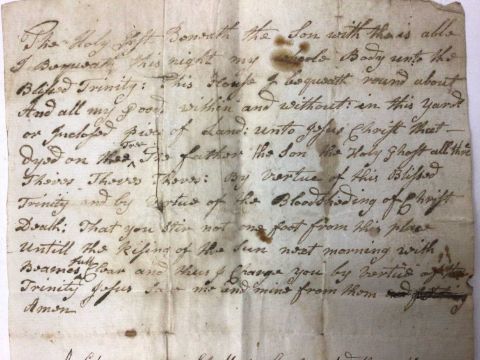 The Holy Gost Beneath the Son with the is able
I Bequeath this night my whole Body unto the
Blessed Trinity: This House I bequeath round about
And all my Goods within and without: in this Yard
or Inclosed piece of Land: unto Jesus Christ that
dyed on the Tree, The father the Son the Holy Ghost all three
Theives Theives Theives: By Vertue of this Blessed
Trinity and by Vertue of the Bloodsheding of Christ
Death: That you Stir not one foot from this place
Untill the Rising of the Sun next morning with
Beames full Clear and thus I Charge you by Vertue of the
Trinity Jesus Save me and mine from them and
Amen